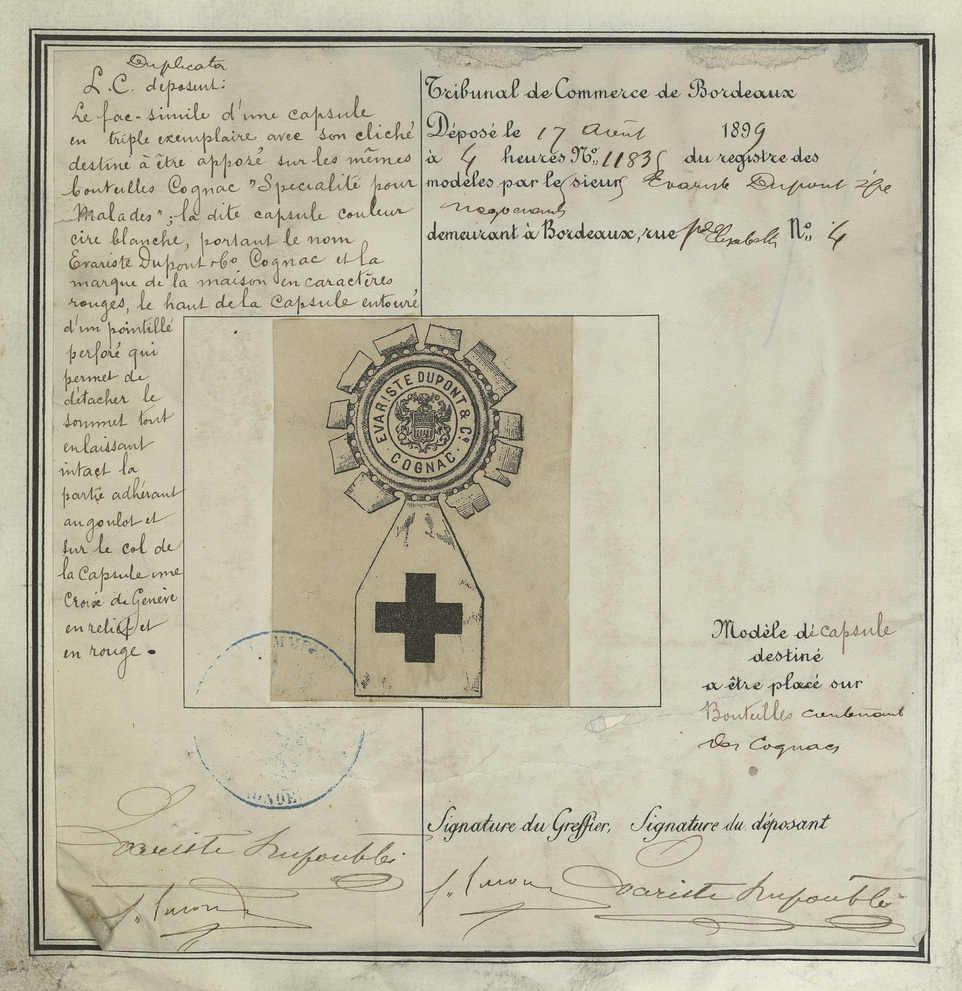 Duplicata
L.C. déposent:
Le fac-simile d'une capsule
en triple exemplaire avec son cliché
destiné à être apposé sur les mêmes
bouteilles Cognac "Spécialité pour
Malades"; la dite capsule couleur
cire blanche, portant le nom
Evariste Dupont & Co Cognac et la
marque de la maison en caractères
rouges, le haut de la capsule entouré
d'un pointillé
perforé qui
permet de
détacher le
sommet tout
en laissant
intact la
partie adhérant
au goulot et
sur le col de
la Capsule une
Croix de Genève
en relief et
en rouge.
Tribunal de Commerce de Bordeaux
Déposé le 17 Août 1899
à 4 heures No. 11835 du registre des
modèles par les sieurs Evariste Dupont
négociants
demeurant à Bordeaux, rue No. 4
EVARISTE DUPONT & Co.
COGNAC
Modèle de capsule
destiné
a être placé sur
Bouteilles contenant
des Cognacs
Signature du Greffier, Signature du déposant